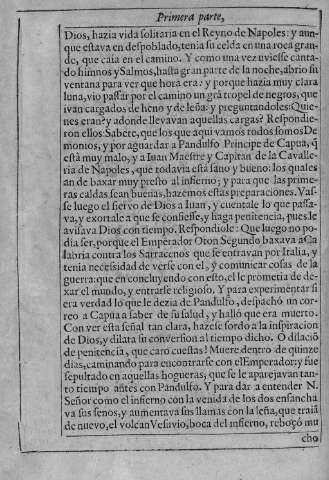 Primera parte,
Dios, hazia vida solitaria en el Reyno de Napoles: y aun-
que estava en despoblado, tenia su celda en una roca gran-
de, que caia en el camino. Y como una vez uviesse canta-
do himnos y Salmos, hasta gran parte de la noche, abrio su
ventana para ver que hora era: y porque hazia muy clara
luna, vio passar por el camino un grã tropel de negros, que
ivan cargados de heno y de leña: y preguntandoles: Quie-
nes eran? y adonde llevavan aquellas cargas? Respondie-
ron ellos: Sabete, que los que aqui vamos todos somos De
monios, y por aguardar a Pandulfo Principe de Capua, q̃
està muy malo, y a Iuan Maestre y Capitan de la Cavalle-
ria de Napoles, que todavia està sano y bueno: los quales
an de baxar muy presto al infierno; y para que las prime-
ras caldas sean buenas, hazemos estas preparaciones. Vas-
se luego el siervo de Dios a Iuan, y cuentale lo que passa-
va, y exortale a que se confiesse, y haga penitencia, pues le
avisava Dios con tiempo. Respondiole: Que luego no po-
dia ser, porque el Emperador Oton Segundo baxava a Ca
labria contra los Sarracenos que se entravan por Italia, y
tenia necessidad de verse con el, y comunicar cosas de la
guerra: que en concluyendo con esto, el le prometia de de-
xar el mundo, y entrarse religioso. Y para experimentar si
era verdad lo que le dezia de Pandulfo, despachó un cor-
reo a Capua a saber de su salud, y hallò que era muerto.
Con ver esta señal tan clara, hazese sordo a la inspiracion
de Dios, y dilata su conversion al tiempo dicho. O dilaciõ
de penitencia, que caro cuestas! Muere dentro de quinze
dias, caminando para encontrarse con el Emperador: y fue
sepultado en aquellas hogueras, que se le aparejavan tan-
to tiempo antes con Pandulfo. Y para dar a entender N.
Señor como el infierno con la venida de los dos ensancha
va sus senos, y aumentava sus llamas con la leña, que traiã
de nuevo, el volcan Vesuvio, boca del infierno, rebosò mu
cho